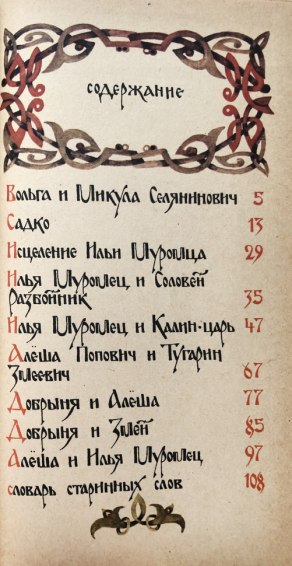 содержание
Вольга и Микула Селянинович 5
Садко 13
Исцеление Ильи Муромца 29
Илья Муромец и Соловей
Разбойник 35
Илья Муромец и Калин-царь 47
Алёша Попович и Тугарин
Змеевич 67
Добрыня и Алёша 77
Добрыня и Змей 85
Алёша и Илья Муромец 97
словарь старинных слов 108